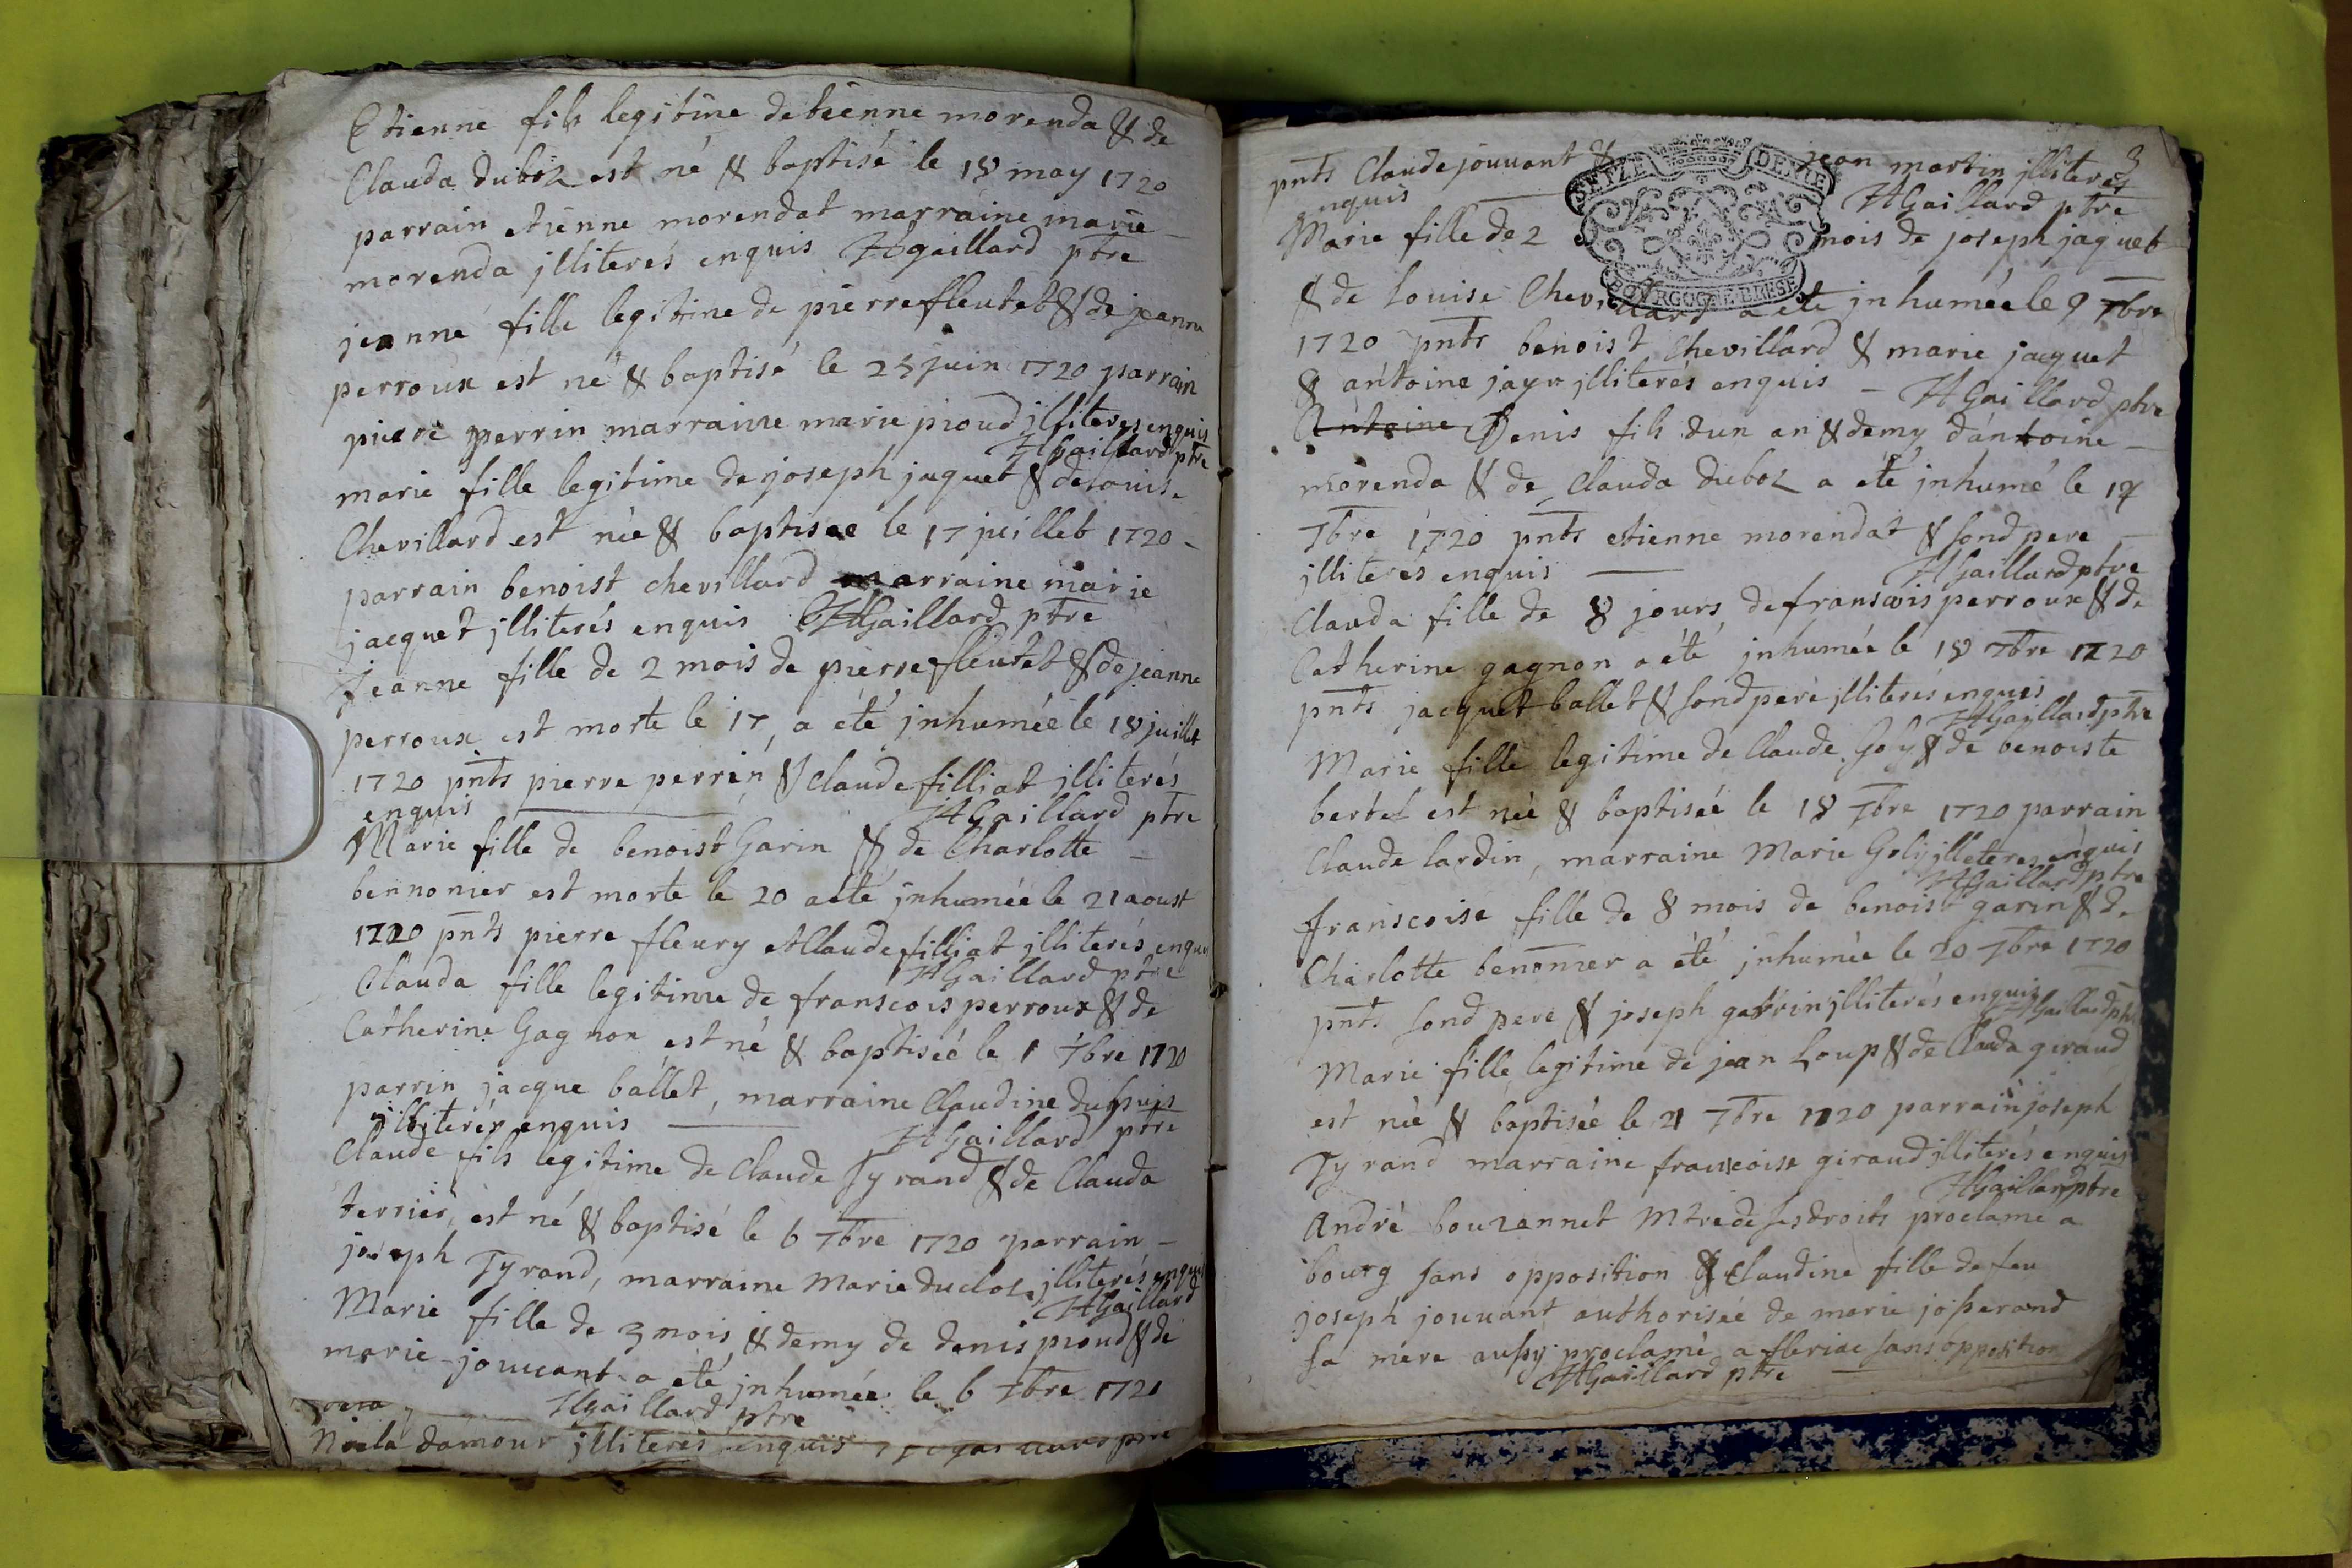 Etienne fils legitime detienne morenda & de
Clauda duboz est né & baptisé le 18 may 1720
parrain etienne morendat marraine marie
morenda jlliterés enquis HGaillard ptre
jeanne fille legitime de pierre fleutet & de jeanne
perroux est né & baptisé le 25 juin 1720 parrain
pierre perrin marraine marie pioud jlliterés enquis
HGaillard ptre
marie fille legitime de joseph jaquet & de Louise
Chevillard est née & baptisee le 17 juillet 1720
parrain benoist chevillard marraine marie
jacquet jlliterés enquis HGaillard ptre
Jeanne fille de 2 mois de pierre fleutet & de jeanne
perroux est morte le 17, a été jnhumée le 18 juillet
1720 pnts pierre perrin & Claude filliat jlliterés
enquis HGaillard ptre
Marie fille de benoist Garin & de Charlotte
bennonier est morte le 20 a été jnhumée le 21 aoust
1720 pnts pierre fleury et Claude filliat jlliterés enquis
HGaillard ptre
Clauda fille legitime de franscois perroux & de
Catherine Gagnon est né & baptiseé le 1 7bre 1720
parrin jacque ballet, marraine Claudine dupuis
jlliterés enquis HGaillard ptre
Claude fils legitime de Claude Tyrand & de Clauda
terrier, est né & baptisé le 6 7bre 1720 parrain
joseph Tyrand, marraine Marie duclos jlliterés enquis
HGaillard
Marie fille de 3 mois & demy de denis pioud & de
marie jouuant a été jnhumée le 6 7bre 1720
HGaillard ptre
damour jlliterés enquis
3
pnts Claude jouuant & jean martin jlliterés
enquis HGaillard ptre
SEIZE DENIE
BOURGOGNE BRESSE
Marie fille de 2 mois de joseph jaquet
& de Louise Chevillard a été jnhumée le 9 7bre
1720 pnts benoist Chevillard & marie jacquet
& antoine jayr jlliterés enquis HGaillard ptre
Antoine Denis fils dun an & demy dantoine
morenda & de Clauda duboz a été jnhumé le 17
7bre 1720 pnts etienne morendat & sond pere
jlliterés enquis HGaillard ptre
Clauda fille de 8 jours de franscois perroux & de
Catherine gagnon a été jnhumée le 18 7bre 1720
pnts jacquet ballet & sond pere jlliterés enquis
HGaillard ptre
Marie fille legitime de Claude Goly & de benoiste
bertet est née & baptisée le 18 7bre 1720 parrain
Claude lardin, marraine Marie Goly jlleteres enquis
HGaillard ptre
franscoise fille de 8 mois de benoist garin & de
Charlotte benonier a été jnhumée le 20 7bre 1720
pnts sond pere & joseph garrin jlliterés enquis HGaillard ptre
Marie fille legitime de jean Loup & de Clauda giraud
est née & baptisée le 21 7bre 1720 parrain joseph
Tyrand marraine francoise giraud jlliterés enquis
HGaillard ptre
André bouzannet Mtre de ses droits proclamé a
bourg sans opposition & Claudine fille de feu
joseph jouuant authoriseé de marie josserand
sa mere aussy proclamé a fleriac sans opposition
HGaillard ptre